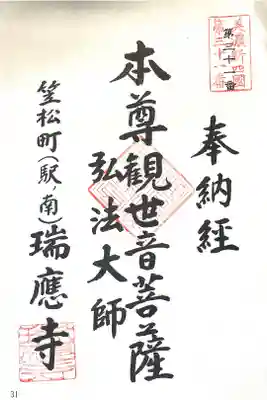 美濃新四國
第三十一番
奉納経
本尊観世音菩薩
弘法大師
笠松町(駅ノ南)瑞應寺
31